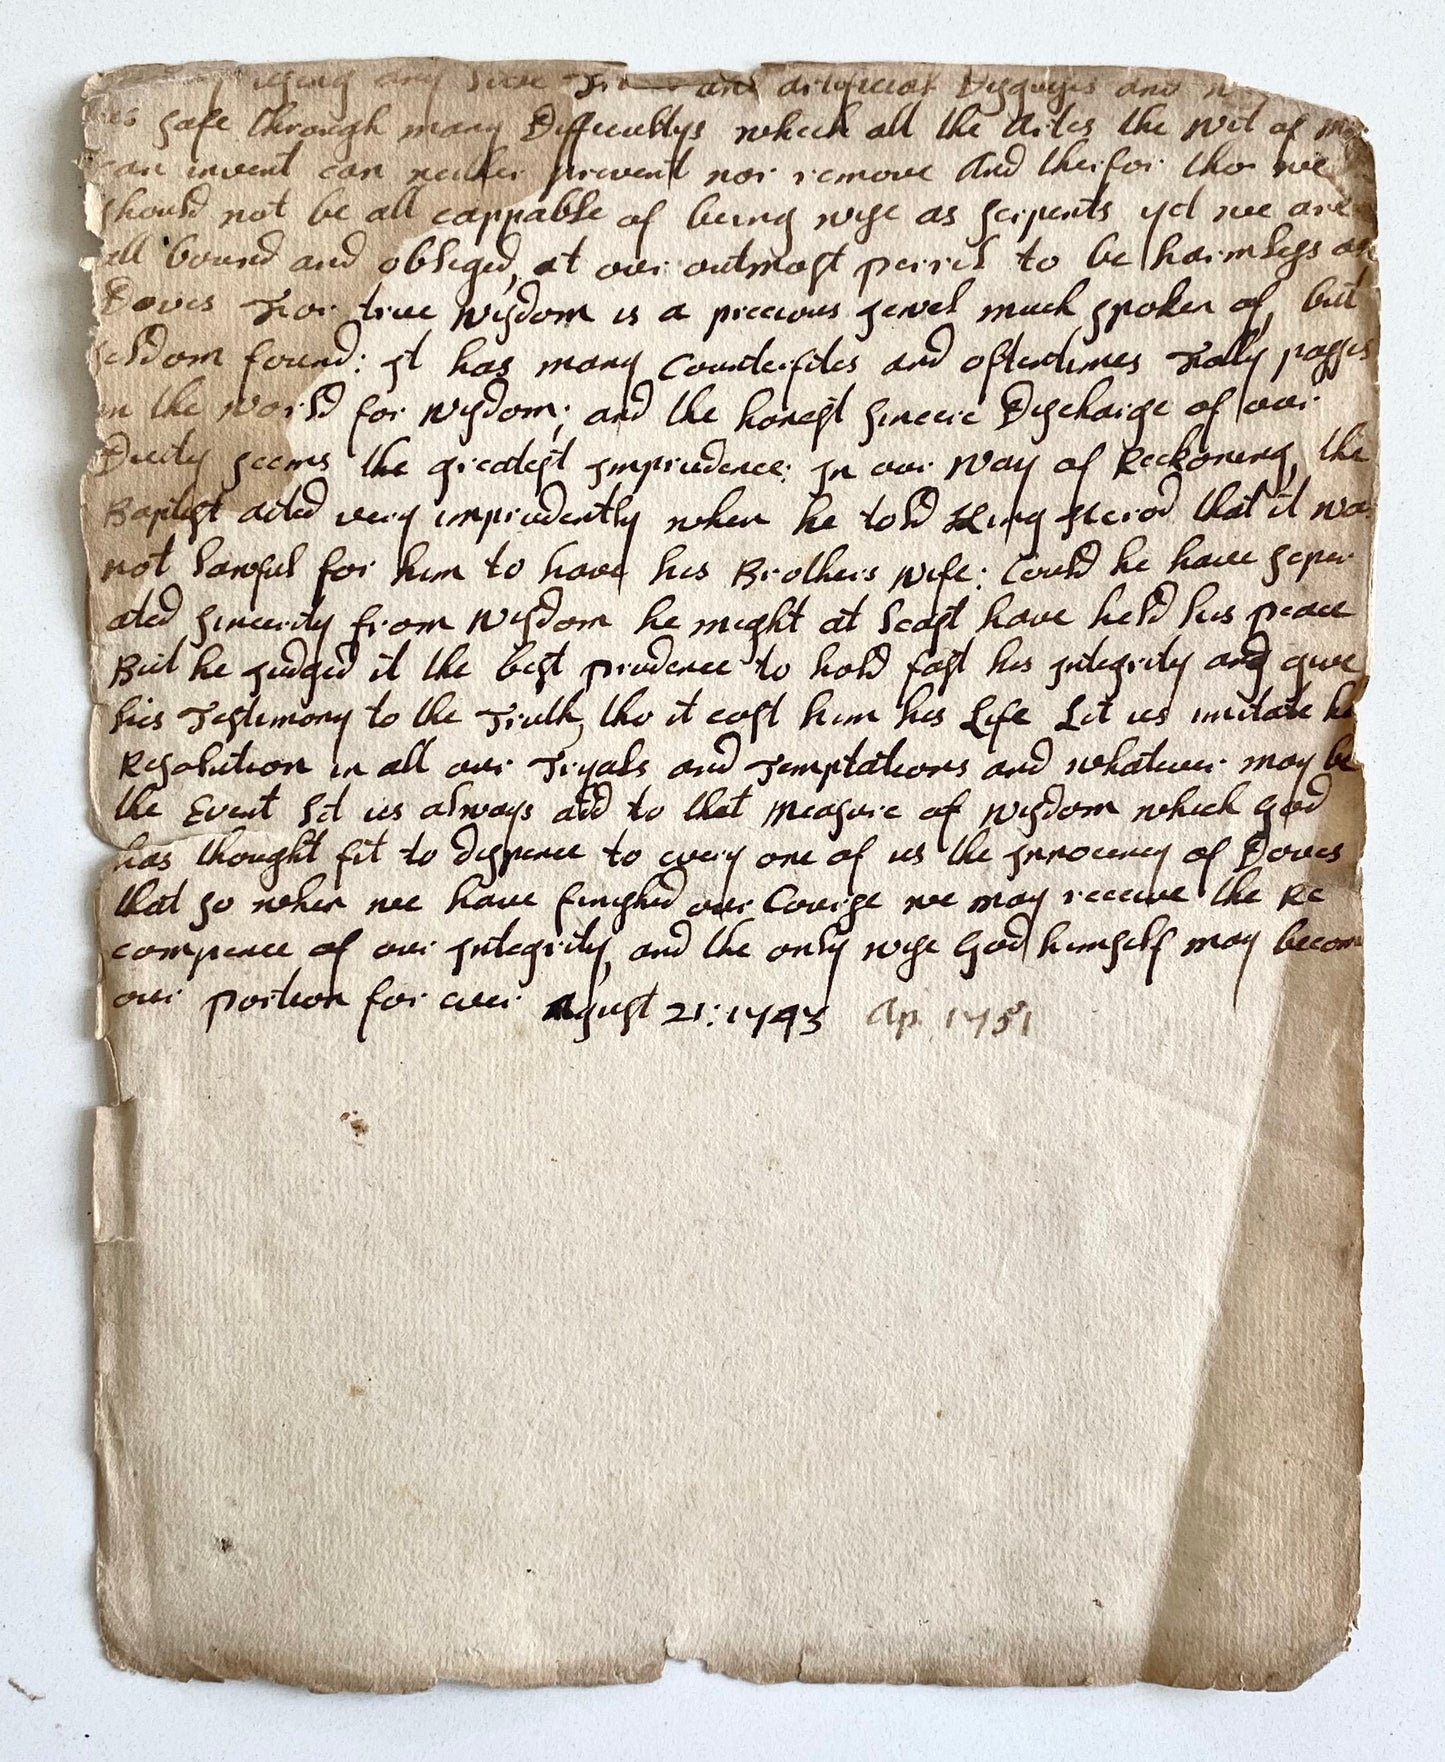 useing any and artificial Dysguyis and
safe through many Difficultys which all the Artes the Wit of
can invent can neither prevent nor remove And therfor tho we
should not be all cappable of being wyse as serpents yet we are
all bound and obliged, at our outmost perrel to be harmless as
Doves For true Wysdom is a precious jewel much spoken of, but
seldom found: It has many Counterfites and oftentimes Folly passes
in the World for Wysdom; and the honest sincere Dyscharge of our
Duety seems the greatest Imprudence: In our Way of Reckoning, the
Baptist acted very imprudently when he told King Herod that it was
not lawful for him to have his Brothers Wife: Could he have seper
ated sincerity from Wysdom he might at least have held his peace
But he judged it the best prudence to hold fast his Integrity and give
his Testimony to the Truth, tho it cost him his Life Let us imitate his
Resolution in all our Tryals and Temptations and whatever may be
the Event let us always add to that Measure of Wysdom which God
has thought fit to dyspence to every one of us the Innocency of Doves
that so when we have finyshed our Course we may receive the Re
compence of our Integrity, and the only wyse God himself may become
our portion for ever Agust 21: 1743 Ap 1751